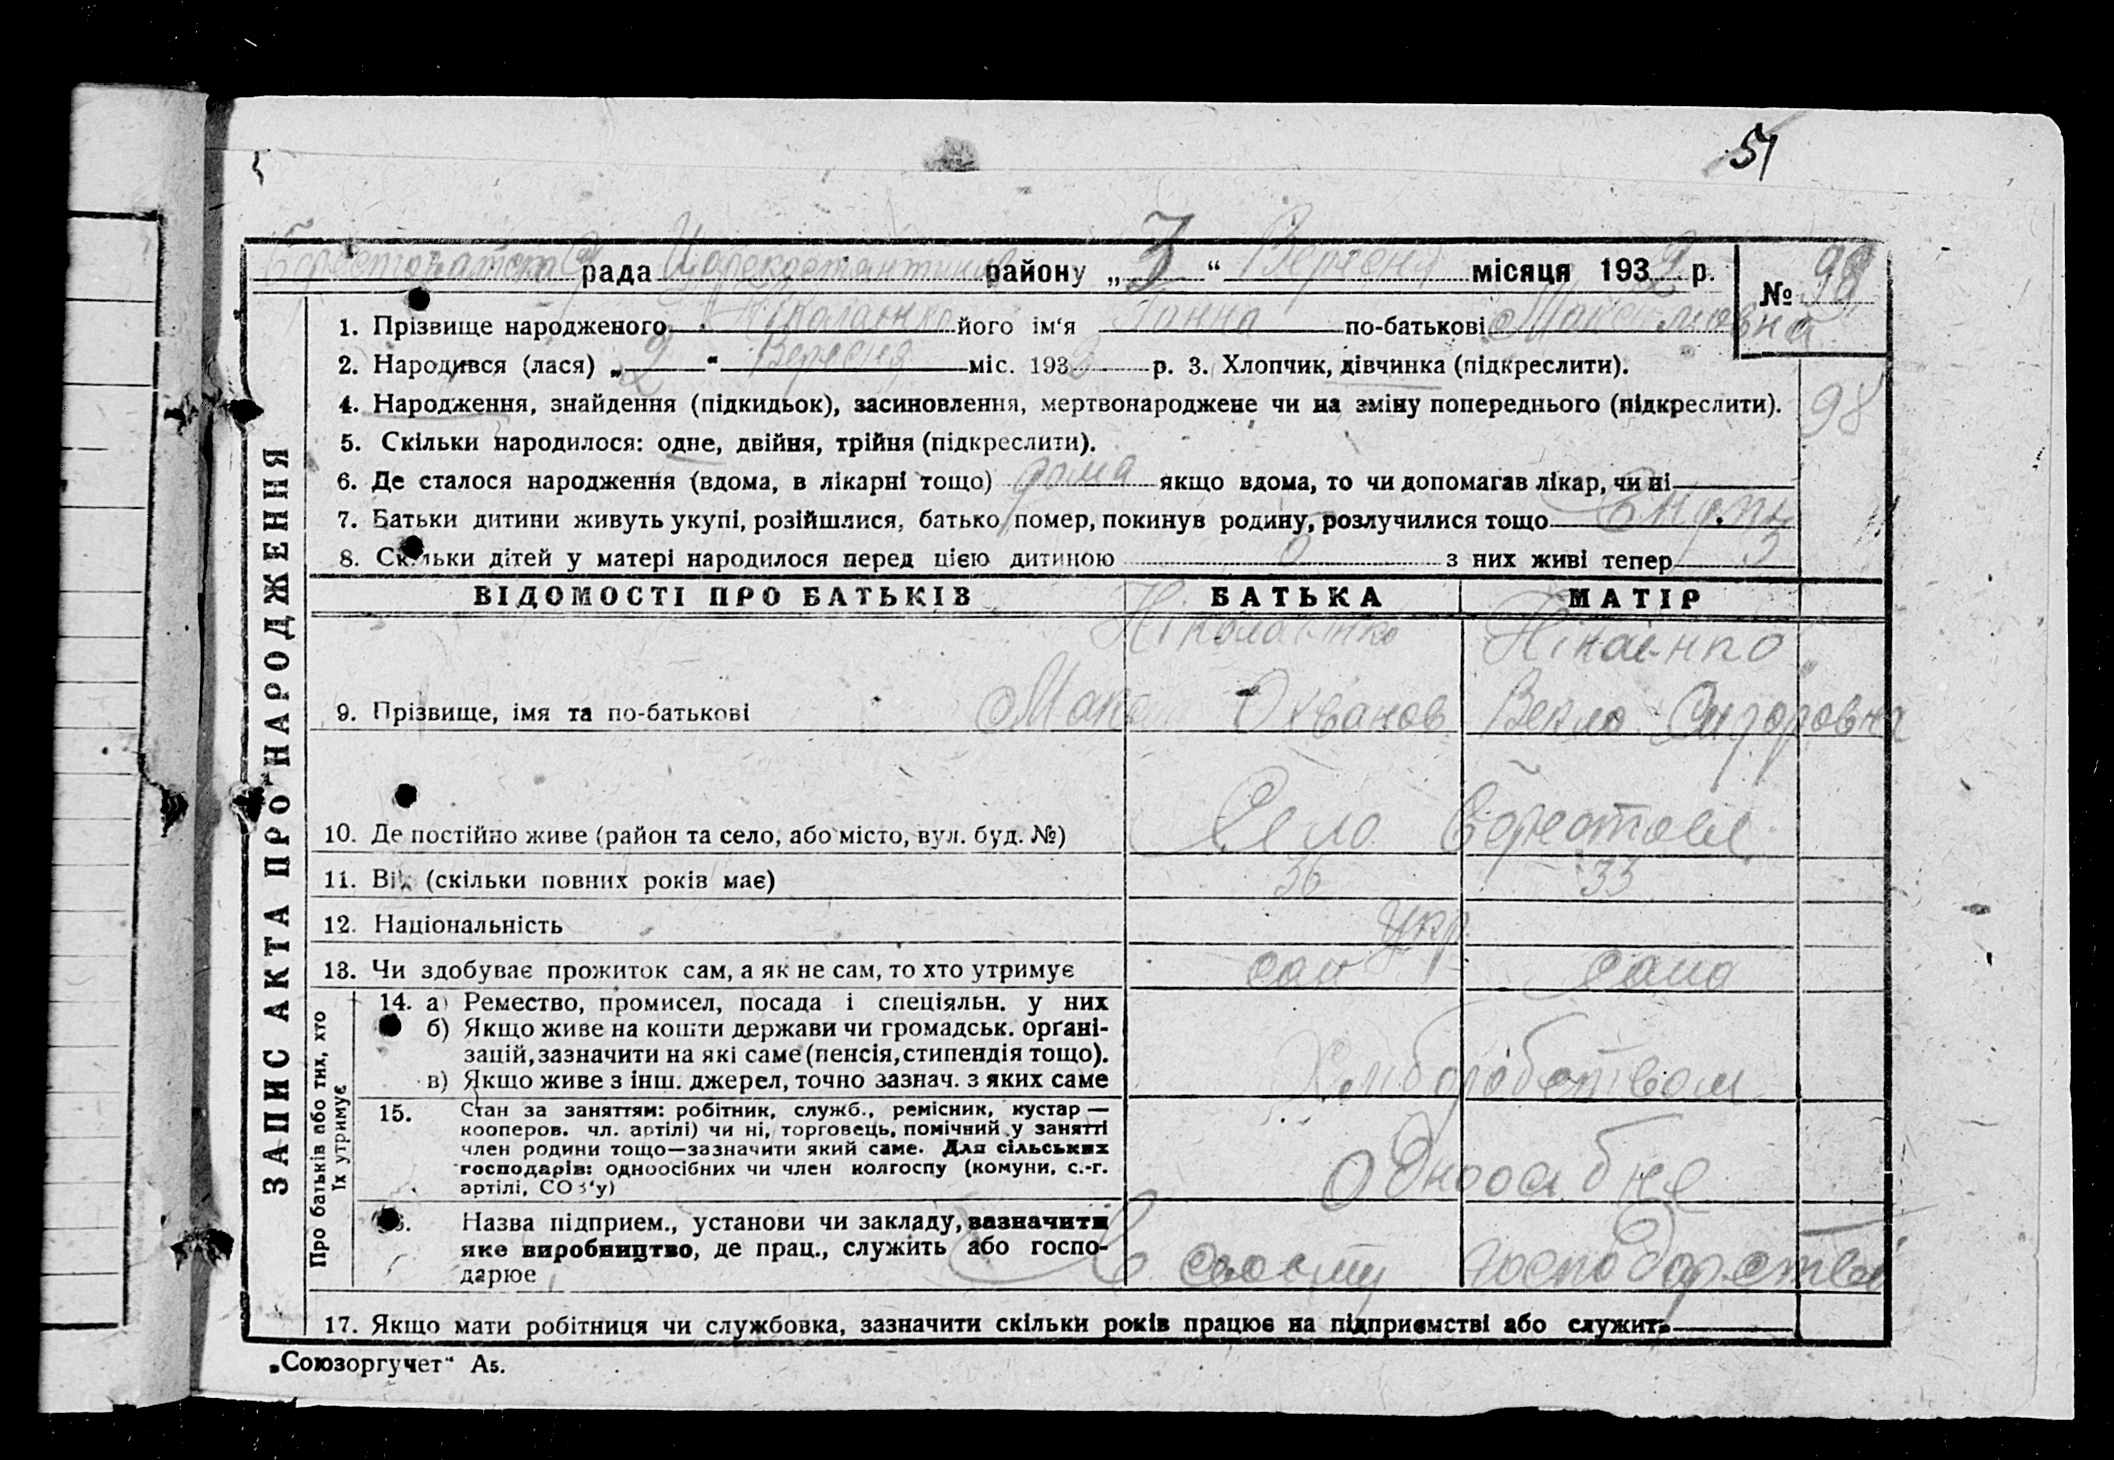 51
рада Царекостянтинів району „ 3 “ Вересня місяця 1932 р. № 98
1. Прізвище народженого Ніколаєнко його ім‘я Ганна по-батькові Максимовна
2. Народився (лася) „ 2 “ Вересня міс. 1932 р. 3. Хлопчик, дівчинка (підкреслити).
4. Народження, знайдення (підкидьок), засиновлення, мертвонароджене чи на зміну попереднього (підкреслити). 98
5. Скільки народилося: одне, двійня, трійня (підкреслити).
6. Де сталося народження (вдома, в лікарні тощо) дома якщо вдома, то чи допомагав лікар, чи ні
7. Батьки дитини живуть укупі, розійшлися, батько помер, покинув родину, розлучилися тощо
8. Скільки дітей у матері народилося перед цією дитиною 6 з них живі тепер 3
ВІДОМОСТІ ПРО БАТЬКІВ БАТЬКА МАТІР
Ніколаєнко
9. Прізвище, імя та по-батькові Векла Сидоровна
10. Де постійно живе (район та село, або місто, вул. буд. №) Село Берестове
11. Вік (скільки повних років має) 36 33
12. Національність Укр
13. Чи здобуває прожиток сам, а як не сам, то хто утримує сам сама
14. а) Ремество, промисел, посада і спеціяльн. у них
б) Якщо живе на кошти держави чи громадськ. орґані-
зацій, зазначити на які саме (пенсія, стипендія тощо).
в) Якщо живе з інш. джерел, точно зазнач. з яких саме Хліборобством
15. Стан за заняттям: робітник, служб., ремісник, кустар —
кооперов. чл. артілі) чи ні, торговець, помічний у занятті
член родини тощо—зазначити який саме. Для сільських
господарів: одноосібних чи член колгоспу (комуни, с.-г. Одноосібне
артілі, СОЗ‘у)
16. Назва підприєм., установи чи закладу, зазначити
яке виробництво, де прац., служить або госпо- В своєму господарстві
дарює
17. Якщо мати робітниця чи службовка, зазначити скільки років працює на підприємстві або служить
„Союзоргучет“ А5.
ЗАПИС АКТА ПРО НАРОДЖЕННЯ
Про батьків або тих, хто
їх утримує